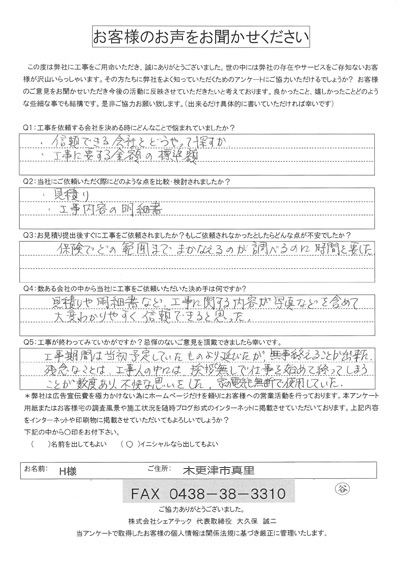 お客様のお声をお聞かせください
この度は弊社に工事をご用命いただき、誠にありがとうございました。世の中には弊社の存在やサービスをご存知ないお客
様が沢山いらっしゃいます。その方たちに弊社をよく知っていただくためのアンケートにご協力いただけるでしょうか？ お客様
のご意見をお聞かせいただき今後の活動に反映させていただきたいと考えております。良かったこと、嬉しかったことどのよう
な些細な事でも結構です。是非ご協力お願い致します。（出来るだけ具体的に書いていただければ幸いです）
Q1：工事を依頼する会社を決める時にどんなことで悩まれていましたか？
・信頼できる会社をどうやって探すか
・工事に要する金額の標準額
Q2：当社にご依頼いただく際にどのような点を比較・検討されましたか？
・見積り
・工事内容の明細書
Q3：お見積り提出後すぐに工事をご依頼されましたか？もしご依頼されなかったとしたらどんな点が不安でしたか？
保険でどの範囲までまかなえるのか調べるのに時間を要した
Q4：数ある会社の中から当社に工事をご依頼いただいた決め手は何ですか？
見積りや明細書など、工事に関する内容が写真などを含めて
大変わかりやすく信頼できると思った。
Q5：工事が終わってみていかがですか？忌憚のないご意見を頂戴できましたら幸いです。
工事期間は当初予定していたものより遅いたが無事終えることが出来た。
残念なことは、工事人の中には、挨拶無しで仕事を始めて終ってしまう
ことが数度あり不快な思いをした。家の電気を無断で使用していた。
＊弊社は広告宣伝費を極力かけない為にホームページだけを頼りにお客様への営業活動を行っております。本アンケート
用紙またはお客様宅の調査風景や施工状況を随時ブログ形式のインターネットに掲載させていただいております。上記内容
をインターネットや印刷物に掲載させていただいてもよろしいでしょうか？
下記の中から〇印をお付下さい。
（　）名前を出してもよい　（〇）イニシャルなら出してもよい
お名前： H様　ご住所： 木更津市真里
FAX 0438－38－3310
谷
ご協力ありがとうございました。
株式会社シェアテック 代表取締役 大久保 誠二
当アンケートで取得したお客様の個人情報は関係法規に基づき厳正に管理いたします。